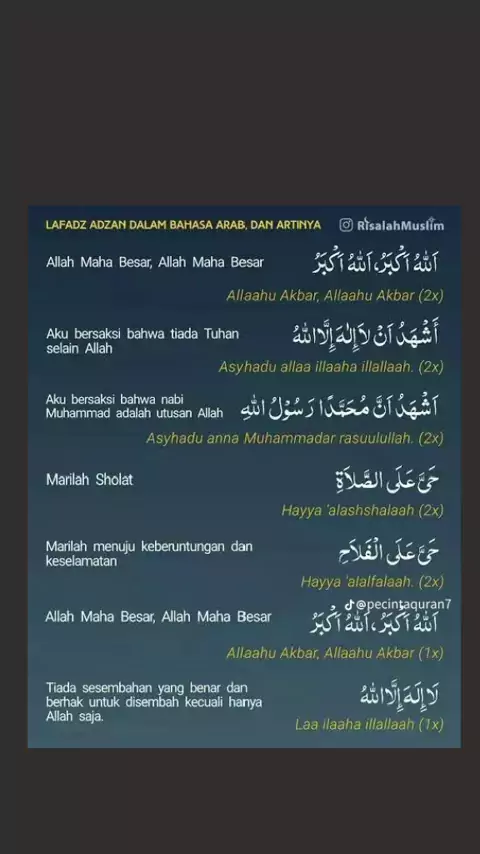 LAFADZ ADZAN DALAM BAHASA ARAB, DAN ARTINYA
RisalahMuslim
Allah Maha Besar, Allah Maha Besar
اَللهُ اَكْبَرُ، اَللهُ اَكْبَرُ
Allaahu Akbar, Allaahu Akbar (2x)
Aku bersaksi bahwa tiada Tuhan
selain Allah
أَشْهَدُ اَنْ لَا إِلٰهَ إِلَّا اللهُ
Asyhadu allaa illaaha illallaah. (2x)
Aku bersaksi bahwa nabi
Muhammad adalah utusan Allah
اَشْهَدُ اَنَّ مُحَمَّدًا رَسُوْلُ اللهِ
Asyhadu anna Muhammadar rasuulullah. (2x)
Marilah Sholat
حَيَّ عَلَى الصَّلَاةِ
Hayya 'alashshalaah (2x)
Marilah menuju keberuntungan dan
keselamatan
حَيَّ عَلَى الْفَلَاحِ
Hayya 'alalfalaah. (2x)
@pecintaquran7
Allah Maha Besar, Allah Maha Besar
اَللهُ اَكْبَرُ، اَللهُ اَكْبَرُ
Allaahu Akbar, Allaahu Akbar (1x)
Tiada sesembahan yang benar dan
berhak untuk disembah kecuali hanya
Allah saja.
لَا إِلَهَ إِلَّا اللهُ
Laa ilaaha illallaah (1x)